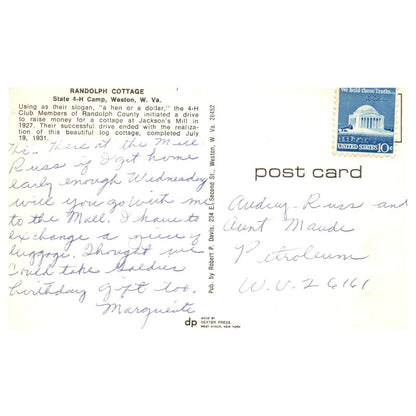 RANDOLPH COTTAGE
State 4-H Camp, Weston, W. Va.
Using as their slogan, "a hen or a dollar," the 4-H
Club Members of Randolph County initiated a drive
to raise money for a cottage at Jackson's Mill in
1927. Their successful drive ended with the realiza-
tion of this beautiful log cottage, completed July
19, 1931.
Hi - There at the Mill.
Russ if I get home
early enough Wednesday
will you go with me
to the Mall. I have to
exchange a piece of
luggage. Thought we
could take
birthday gift too.
Marguerite
Pub. by Robert P. Davis, 234 E. Second St., Weston, W. Va. 26452
dp
MADE BY
DEXTER PRESS
WEST NYACK, NEW YORK
We hold these Truths...
UNITED STATES 10c
post card
Audrey - Russ and
Aunt Maude
Petroleum
W.V. 26161